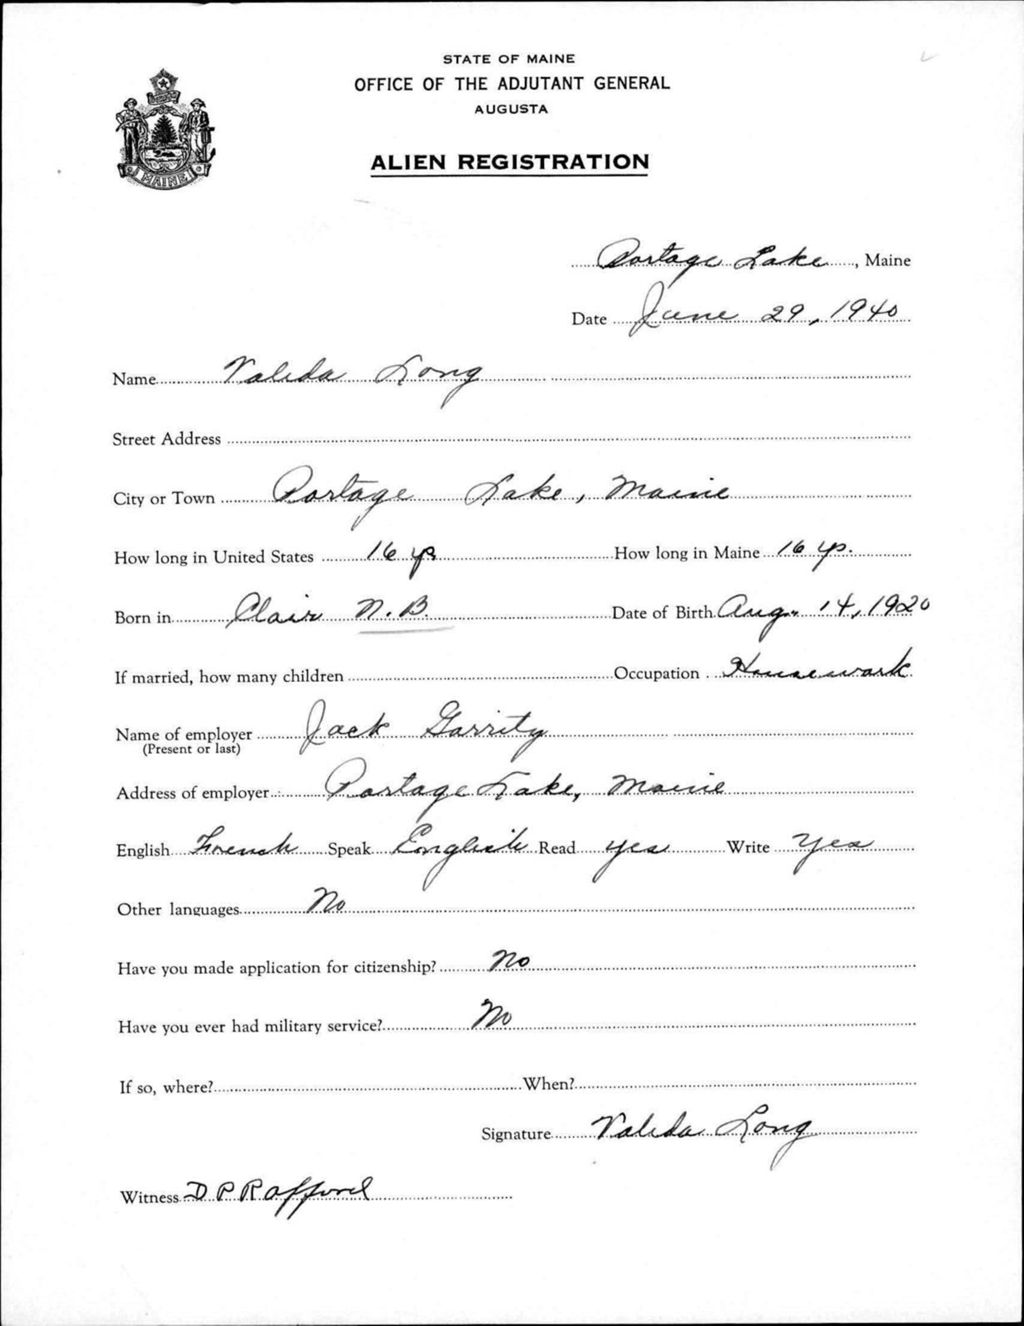 STATE OF MAINE
OFFICE OF THE ADJUTANT GENERAL
AUGUSTA
ALIEN REGISTRATION
MAINE
Portage Lake, Maine
Date June 29, 1940
Name Valeda Long
Street Address
City or Town Portage Lake, Maine
How long in United States 16 yrs How long in Maine 16 yrs.
Born in Clair N.B. Date of Birth Aug. 14, 1920
If married, how many children Occupation Housework
Name of employer Jack Garrity
(Present or last)
Address of employer Portage Lake, Maine
English French Speak English Read yes Write Yes
Other languages No
Have you made application for citizenship? No
Have you ever had military service? No
If so, where? When?
Signature Valeda Long
Witness D P Rafford